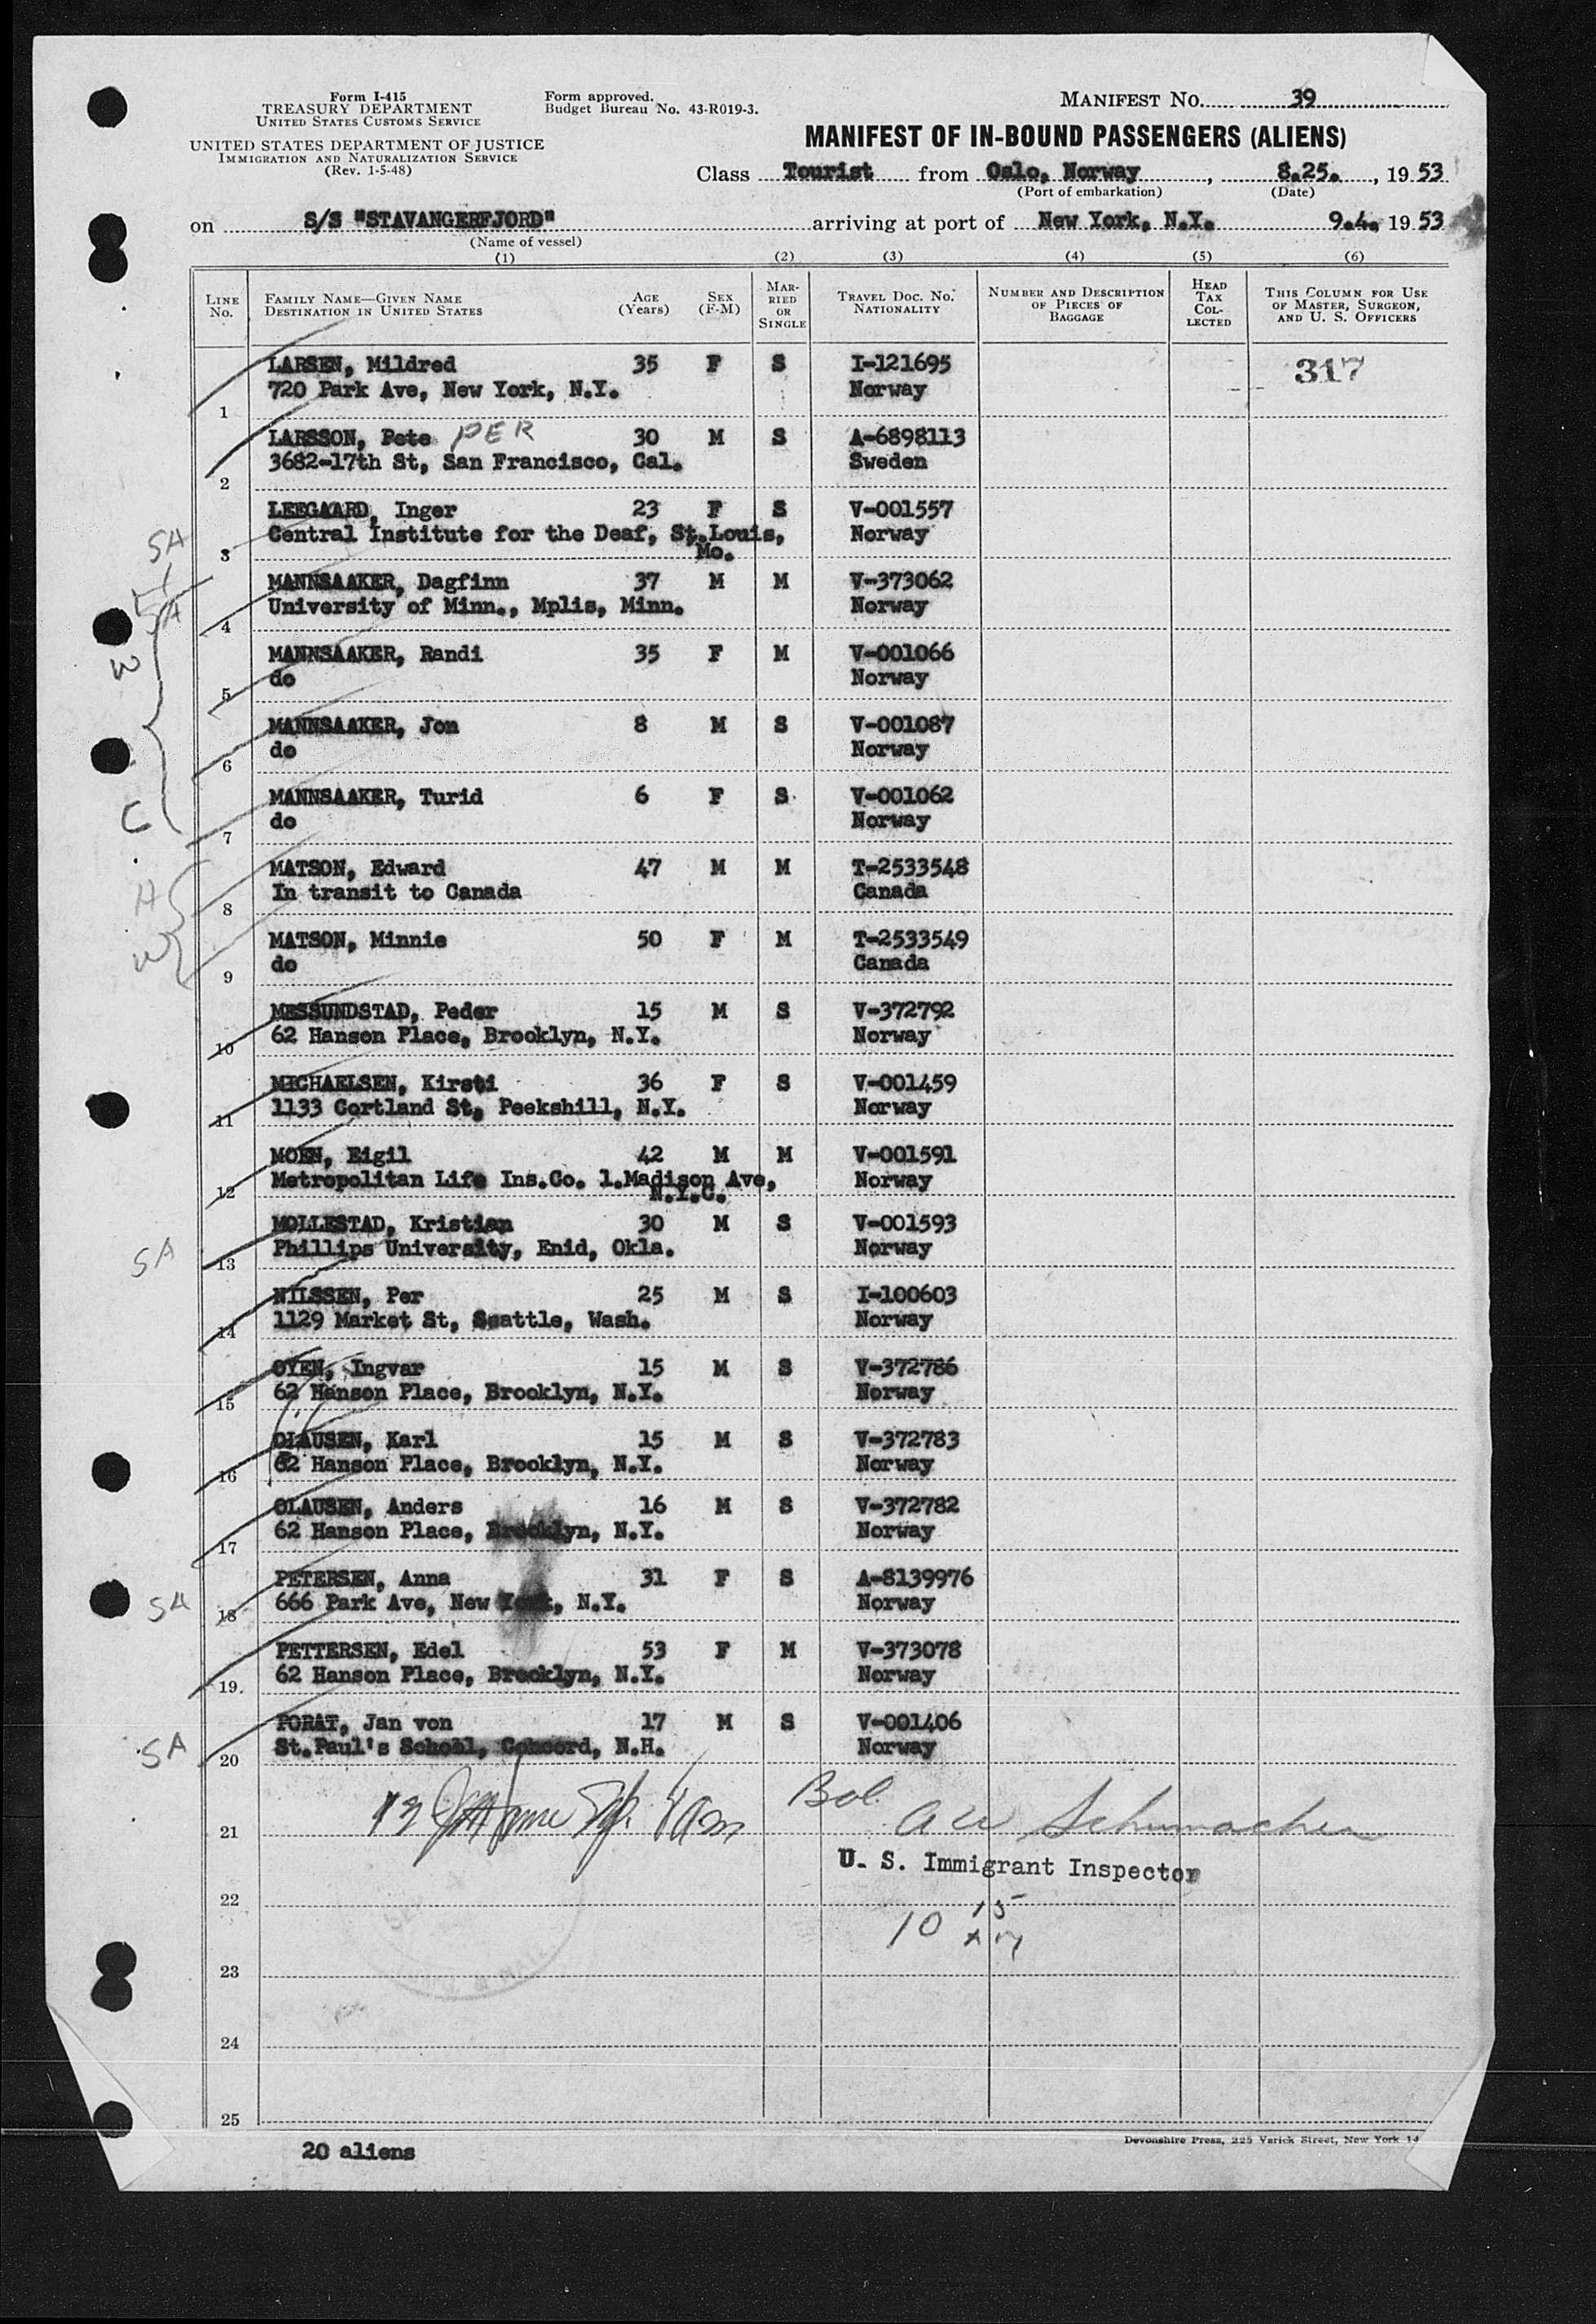 Form I-415
TREASURY DEPARTMENT
UNITED STATES CUSTOMS SERVICE
UNITED STATES DEPARTMENT OF JUSTICE
IMMIGRATION AND NATURALIZATION SERVICE
(Rev. 1-5-48)
Form approved.
Budget Bureau No. 43-R019-3.
MANIFEST NO. 39
MANIFEST OF IN-BOUND PASSENGERS (ALIENS)
Class Tourist from Oslo, Norway, 8.25., 19 53
(Port of embarkation) (Date)
on S/S "STAVANGERFJORD" arriving at port of New York, N.Y. 9.4. 19 53
(Name of vessel)
(1) (2) (3) (4) (5) (6)
LINE No. FAMILY NAME—GIVEN NAME DESTINATION IN UNITED STATES AGE (Years) SEX (F-M) MARRIED OR SINGLE TRAVEL DOC. NO. NATIONALITY NUMBER AND DESCRIPTION OF PIECES OF BAGGAGE HEAD TAX COLLECTED THIS COLUMN FOR USE OF MASTER, SURGEON, AND U. S. OFFICERS
LARSEN, Mildred 35 F S I-121695 317
1 720 Park Ave, New York, N.Y. Norway
LARSSON, Pete PER 30 M S A-6898113
2 3682-17th St, San Francisco, Cal. Sweden
LEEGAARD, Inger 23 F S V-001557
SA 3 Central Institute for the Deaf, St.Louis, Mo. Norway
MANNSAAKER, Dagfinn 37 M M V-373062
SA 4 University of Minn., Mplis, Minn. Norway
W MANNSAAKER, Randi 35 F M V-001066
5 do Norway
MANNSAAKER, Jon 8 M S V-001087
6 do Norway
C MANNSAAKER, Turid 6 F S V-001062
7 do Norway
H MATSON, Edward 47 M M T-2533548
8 In transit to Canada Canada
W MATSON, Minnie 50 F M T-2533549
9 do Canada
MESSUNDSTAD, Peder 15 M S V-372792
10 62 Hanson Place, Brooklyn, N.Y. Norway
MICHAELSEN, Kirsti 36 F S V-001459
11 1133 Cortland St, Peekshill, N.Y. Norway
MOEN, Eigil 42 M M V-001591
12 Metropolitan Life Ins.Co. 1.Madison Ave, N.Y.C. Norway
MOLLESTAD, Kristian 30 M S V-001593
SA 13 Phillips University, Enid, Okla. Norway
NILSSEN, Per 25 M S I-100603
14 1129 Market St, Seattle, Wash. Norway
OYEN, Ingvar 15 M S V-372786
15 62 Hanson Place, Brooklyn, N.Y. Norway
OLAUSEN, Karl 15 M S V-372783
16 62 Hanson Place, Brooklyn, N.Y. Norway
OLAUSEN, Anders 16 M S V-372782
17 62 Hanson Place, Brooklyn, N.Y. Norway
PETERSEN, Anna 31 F S A-8139976
SA 18 666 Park Ave, New York, N.Y. Norway
PETTERSEN, Edel 53 F M V-373078
19. 62 Hanson Place, Brooklyn, N.Y. Norway
PORAT, Jan von 17 M S V-001406
SA 20 St.Paul's School, Concord, N.H. Norway
21 Schumacher
U. S. Immigrant Inspector
22
10 15
23
24
25
20 aliens
Devonshire Press, 225 Varick Street, New York 14